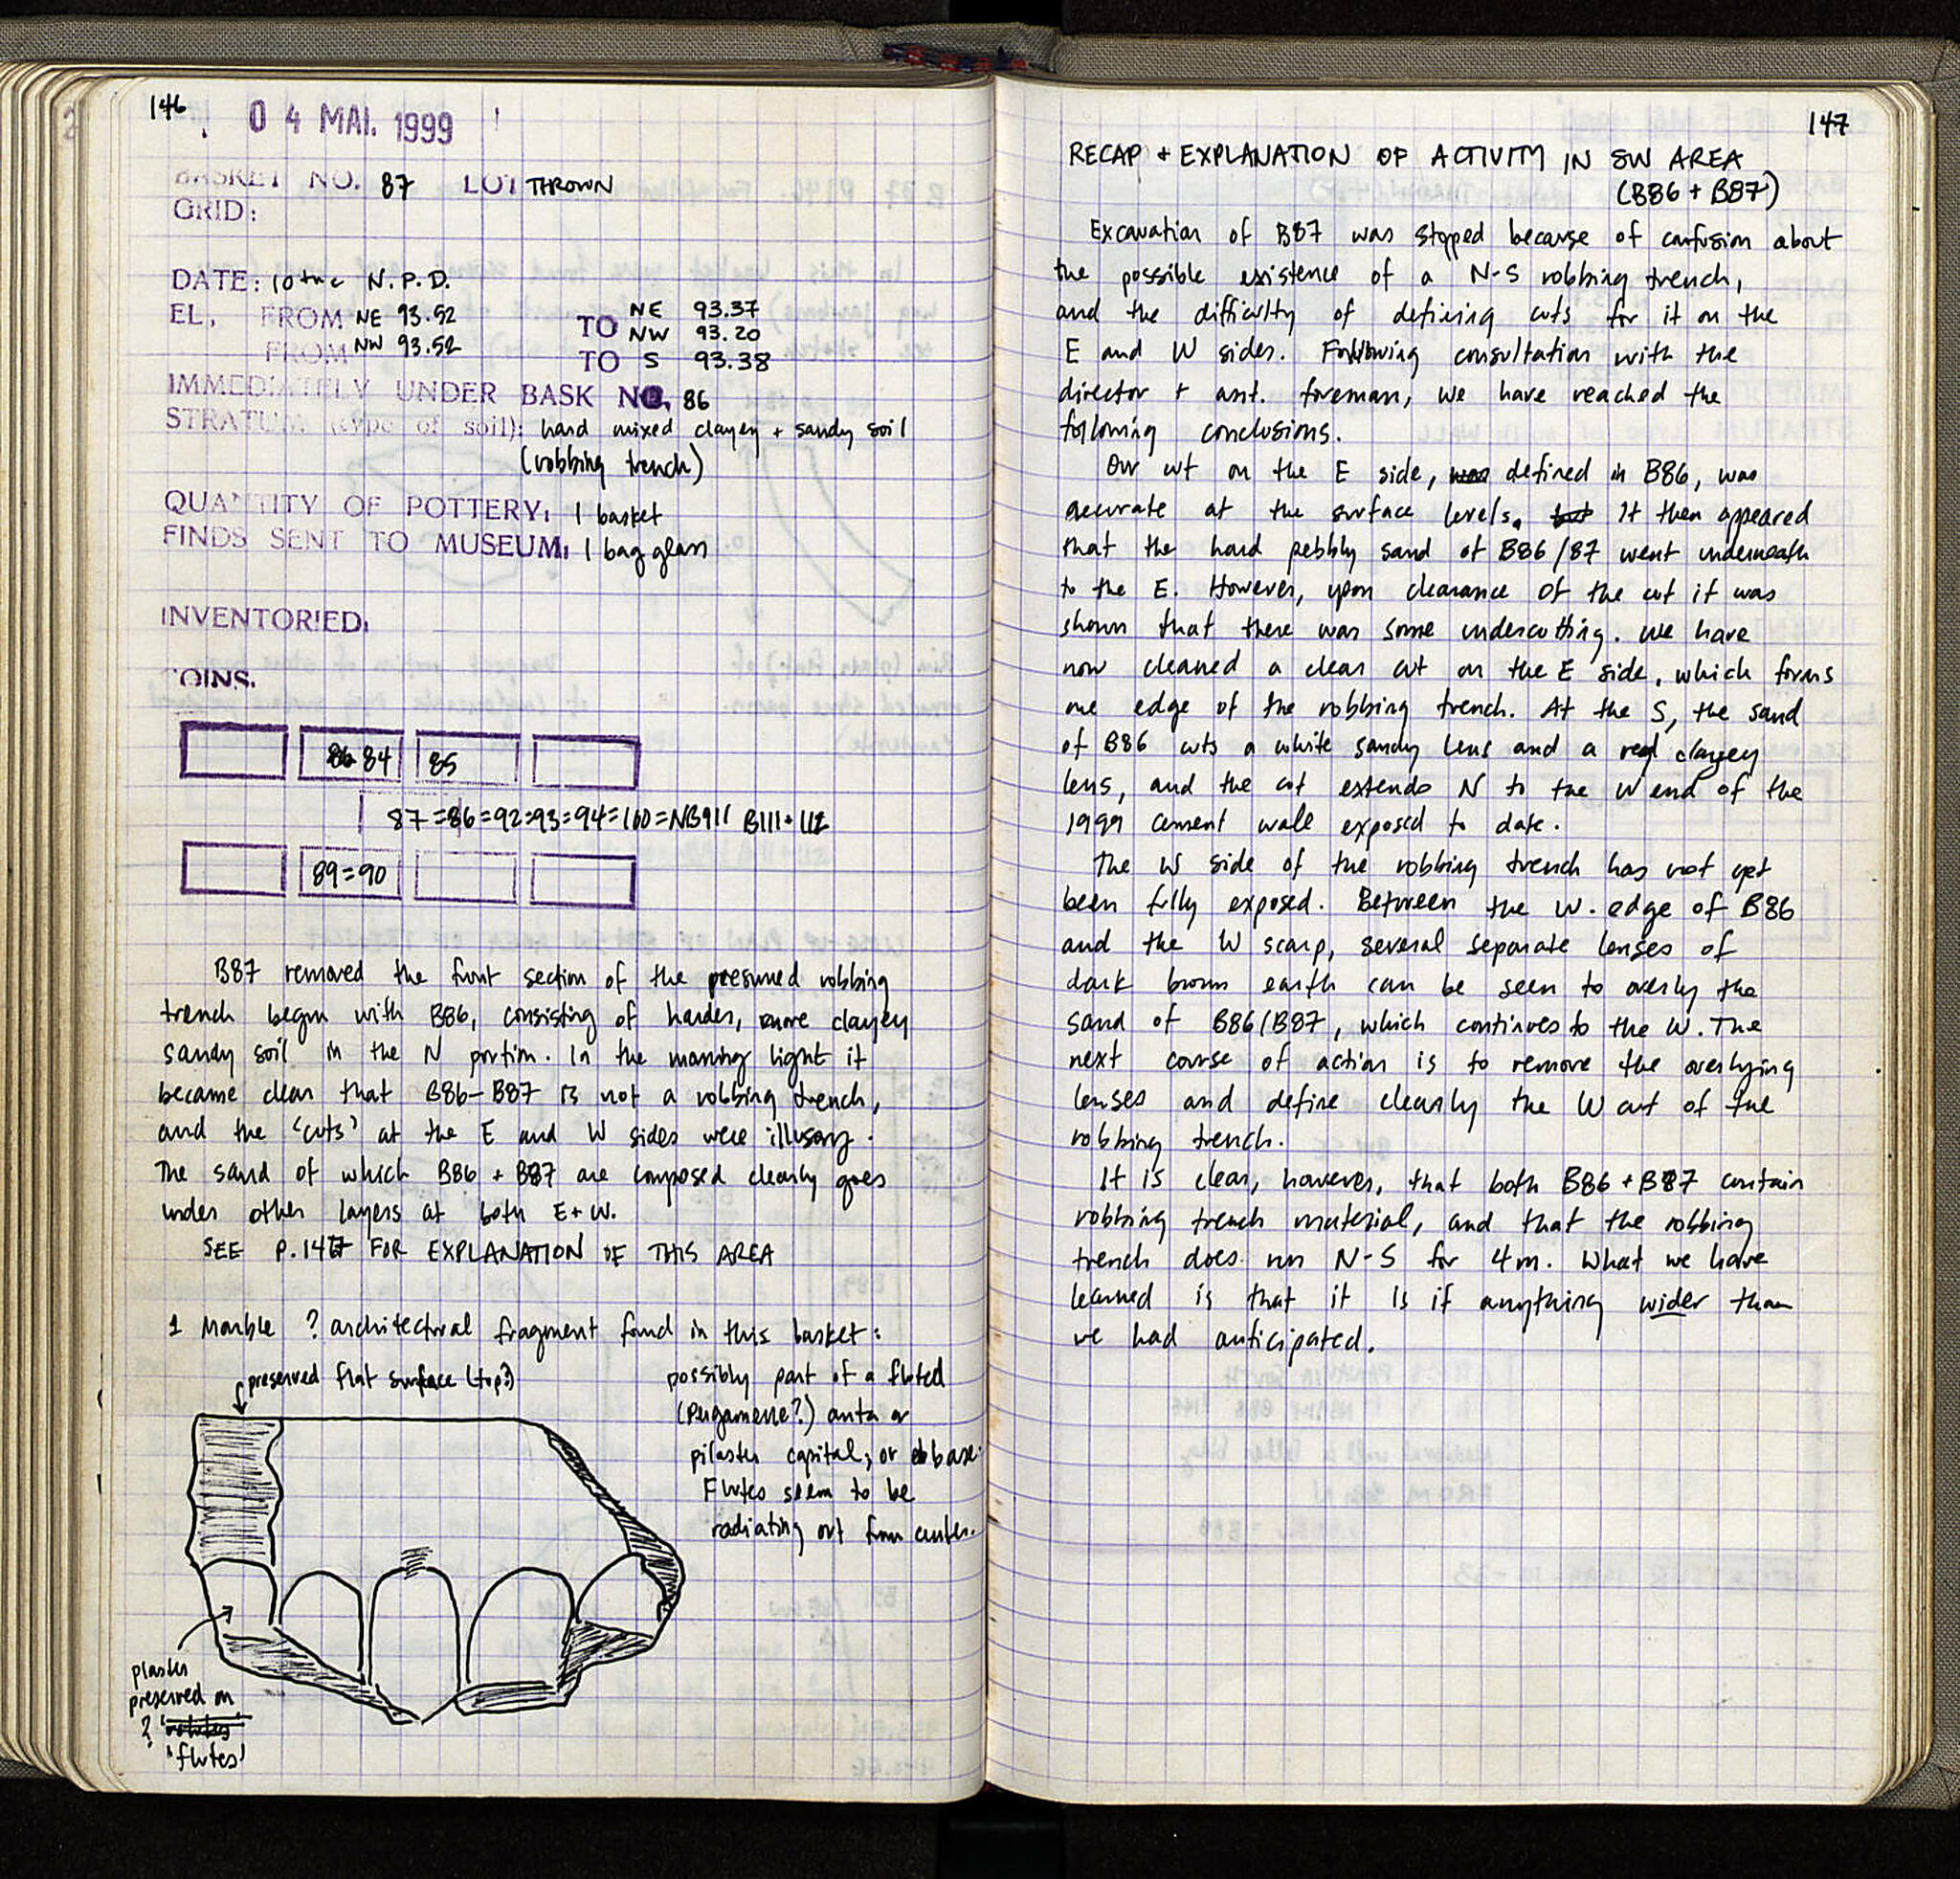 146
04 MAI. 1999
BASKET NO. 87 LOT THROWN
GRID:
DATE: 10th c N.P.D.
EL, FROM NE 93.52 TO NE 93.37
NW 93.20
FROM NW 93.52 TO S 93.38
IMMEDIATELY UNDER BASK NO. 86
STRATUM (type of soil): hard mixed clayey + sandy soil
(robbing trench)
QUANTITY OF POTTERY: 1 basket
FINDS SENT TO MUSEUM: 1 bag glass
INVENTORIED:
COINS.
86 84 85
87=86=92=93=94=100=NB911 B111+112
89=90
B87 removed the front section of the presumed robbing
trench begun with B86, consisting of harder, more clayey
sandy soil in the N portion. In the morning light it
became clear that B86-B87 is not a robbing trench,
and the 'cuts' at the E and W sides were illusory.
The sand of which B86 + B87 are composed clearly goes
under other layers at both E+W.
SEE P.147 FOR EXPLANATION OF THIS AREA
1 Marble ? architectural fragment found in this basket:
preserved flat surface (top?)
possibly part of a fluted
(Pergamene?) anta or
pilaster capital, or base.
Flutes seem to be
radiating out from center.
plaster
preserved on
? 'volutes'
'flutes'
147
RECAP + EXPLANATION OF ACTIVITY IN SW AREA
(B86 + B87)
Excavation of B87 was stopped because of confusion about
the possible existence of a N-S robbing trench,
and the difficulty of defining cuts for it on the
E and W sides. Following consultation with the
director + asst. foreman, we have reached the
following conclusions.
Our cut on the E side, was defined in B86, was
accurate at the surface levels. but It then appeared
that the hard pebbly sand of B86/87 went underneath
to the E. However, upon clearance of the cut it was
shown that there was some undercutting. We have
now cleaned a clear cut on the E side, which forms
one edge of the robbing trench. At the S, the sand
of B86 cuts a white sandy lens and a red clayey
lens, and the cut extends N to the W end of the
1999 cement wall exposed to date.
The W side of the robbing trench has not yet
been fully exposed. Between the W. edge of B86
and the W scarp, several separate lenses of
dark brown earth can be seen to overly the
sand of B86/B87, which continues to the W. The
next course of action is to remove the overlying
lenses and define clearly the W cut of the
robbing trench.
It is clear, however, that both B86 + B87 contain
robbing trench material, and that the robbing
trench does run N-S for 4m. What we have
learned is that it is if anything wider than
we had anticipated.